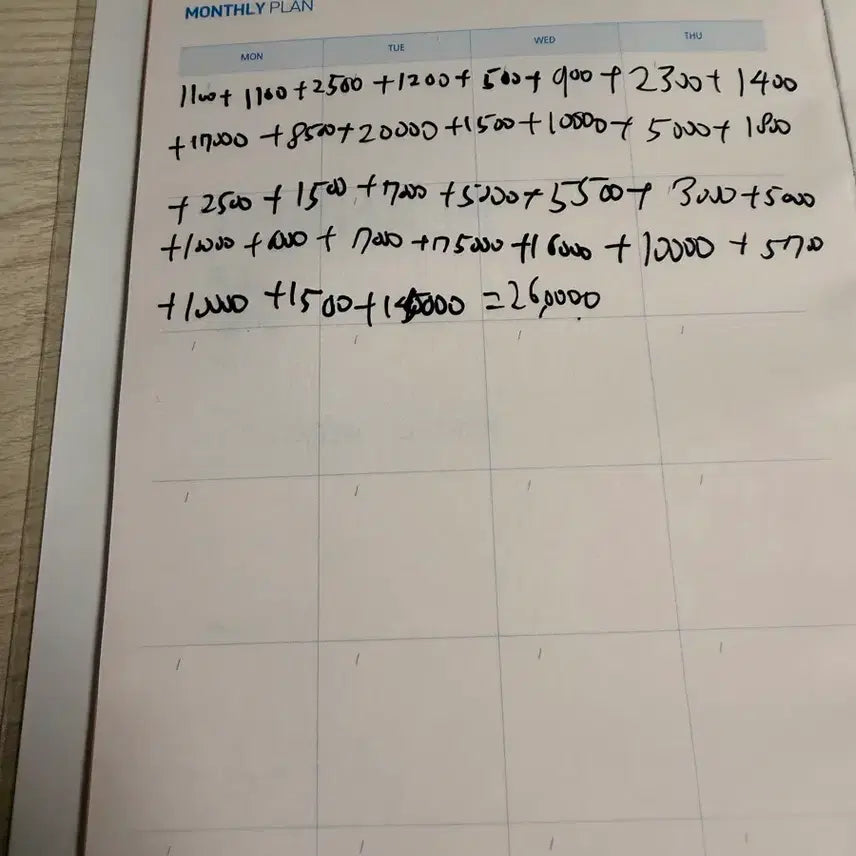 MONTHLY PLAN
MON TUE WED THU
1100+ 1100 +2500 +1200+ 500+ 900 + 2300+ 1400
+17000 +8500+20000 +1500+10000+ 5000+ 1800
+ 2500 + 1500 +7200 +5000+5500+ 3000+5000
+10000 + + 7000 +75000 +16000 + 10000 + 5700
+1500+ =260000